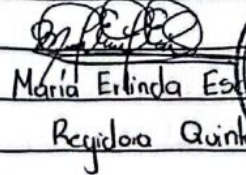 María Erlinda Es
Regidora Quint